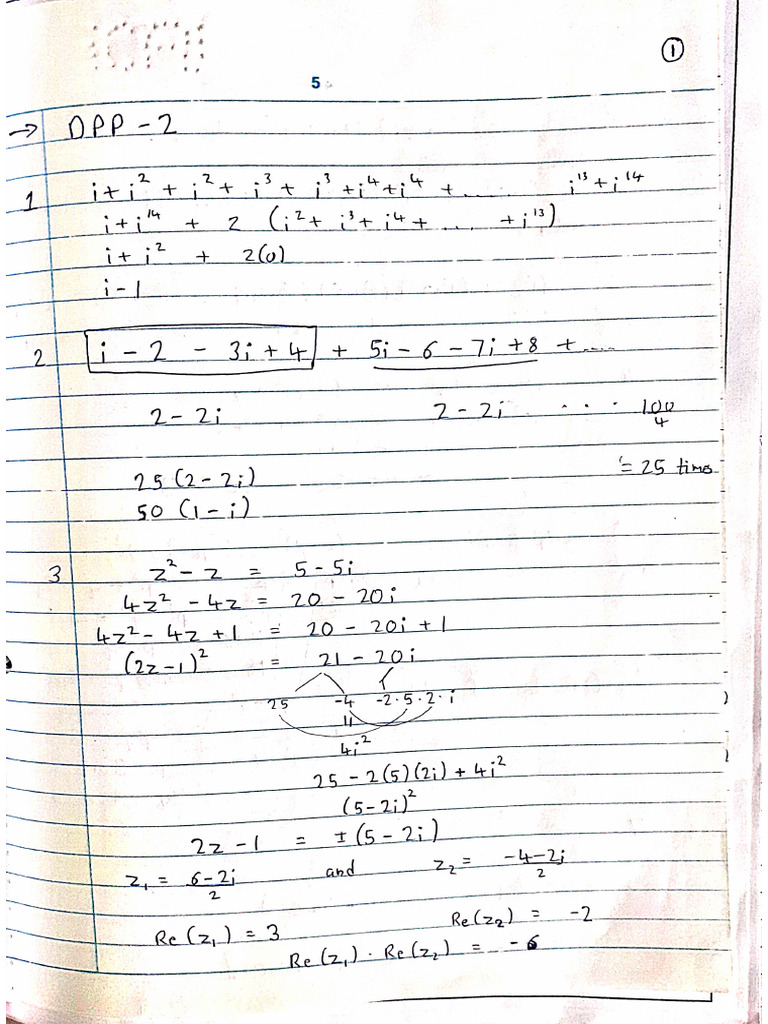 ①
5
→ DPP - 2
1 i + i² + i² + i³ + i³ + i⁴ + i⁴ + ..... i¹³ + i¹⁴
i + i¹⁴ + 2 (i² + i³ + i⁴ + .... + i¹³)
i + i² + 2(0)
i - 1
2 i - 2 - 3i + 4 + 5i - 6 - 7i + 8 + .....
2 - 2i 2 - 2i . . . 100/4
= 25 times
25 (2 - 2i)
50 (1 - i)
3 z² - z = 5 - 5i
4z² - 4z = 20 - 20i
4z² - 4z + 1 = 20 - 20i + 1
(2z - 1)² = 21 - 20i
25 -4 -2·5·2·i
4i²
25 - 2(5)(2i) + 4i²
(5 - 2i)²
2z - 1 = ± (5 - 2i)
z₁ = 6 - 2i/2 and z₂ = -4 - 2i/2
Re(z₁) = 3 Re(z₂) = -2
Re(z₁) · Re(z₂) = -6